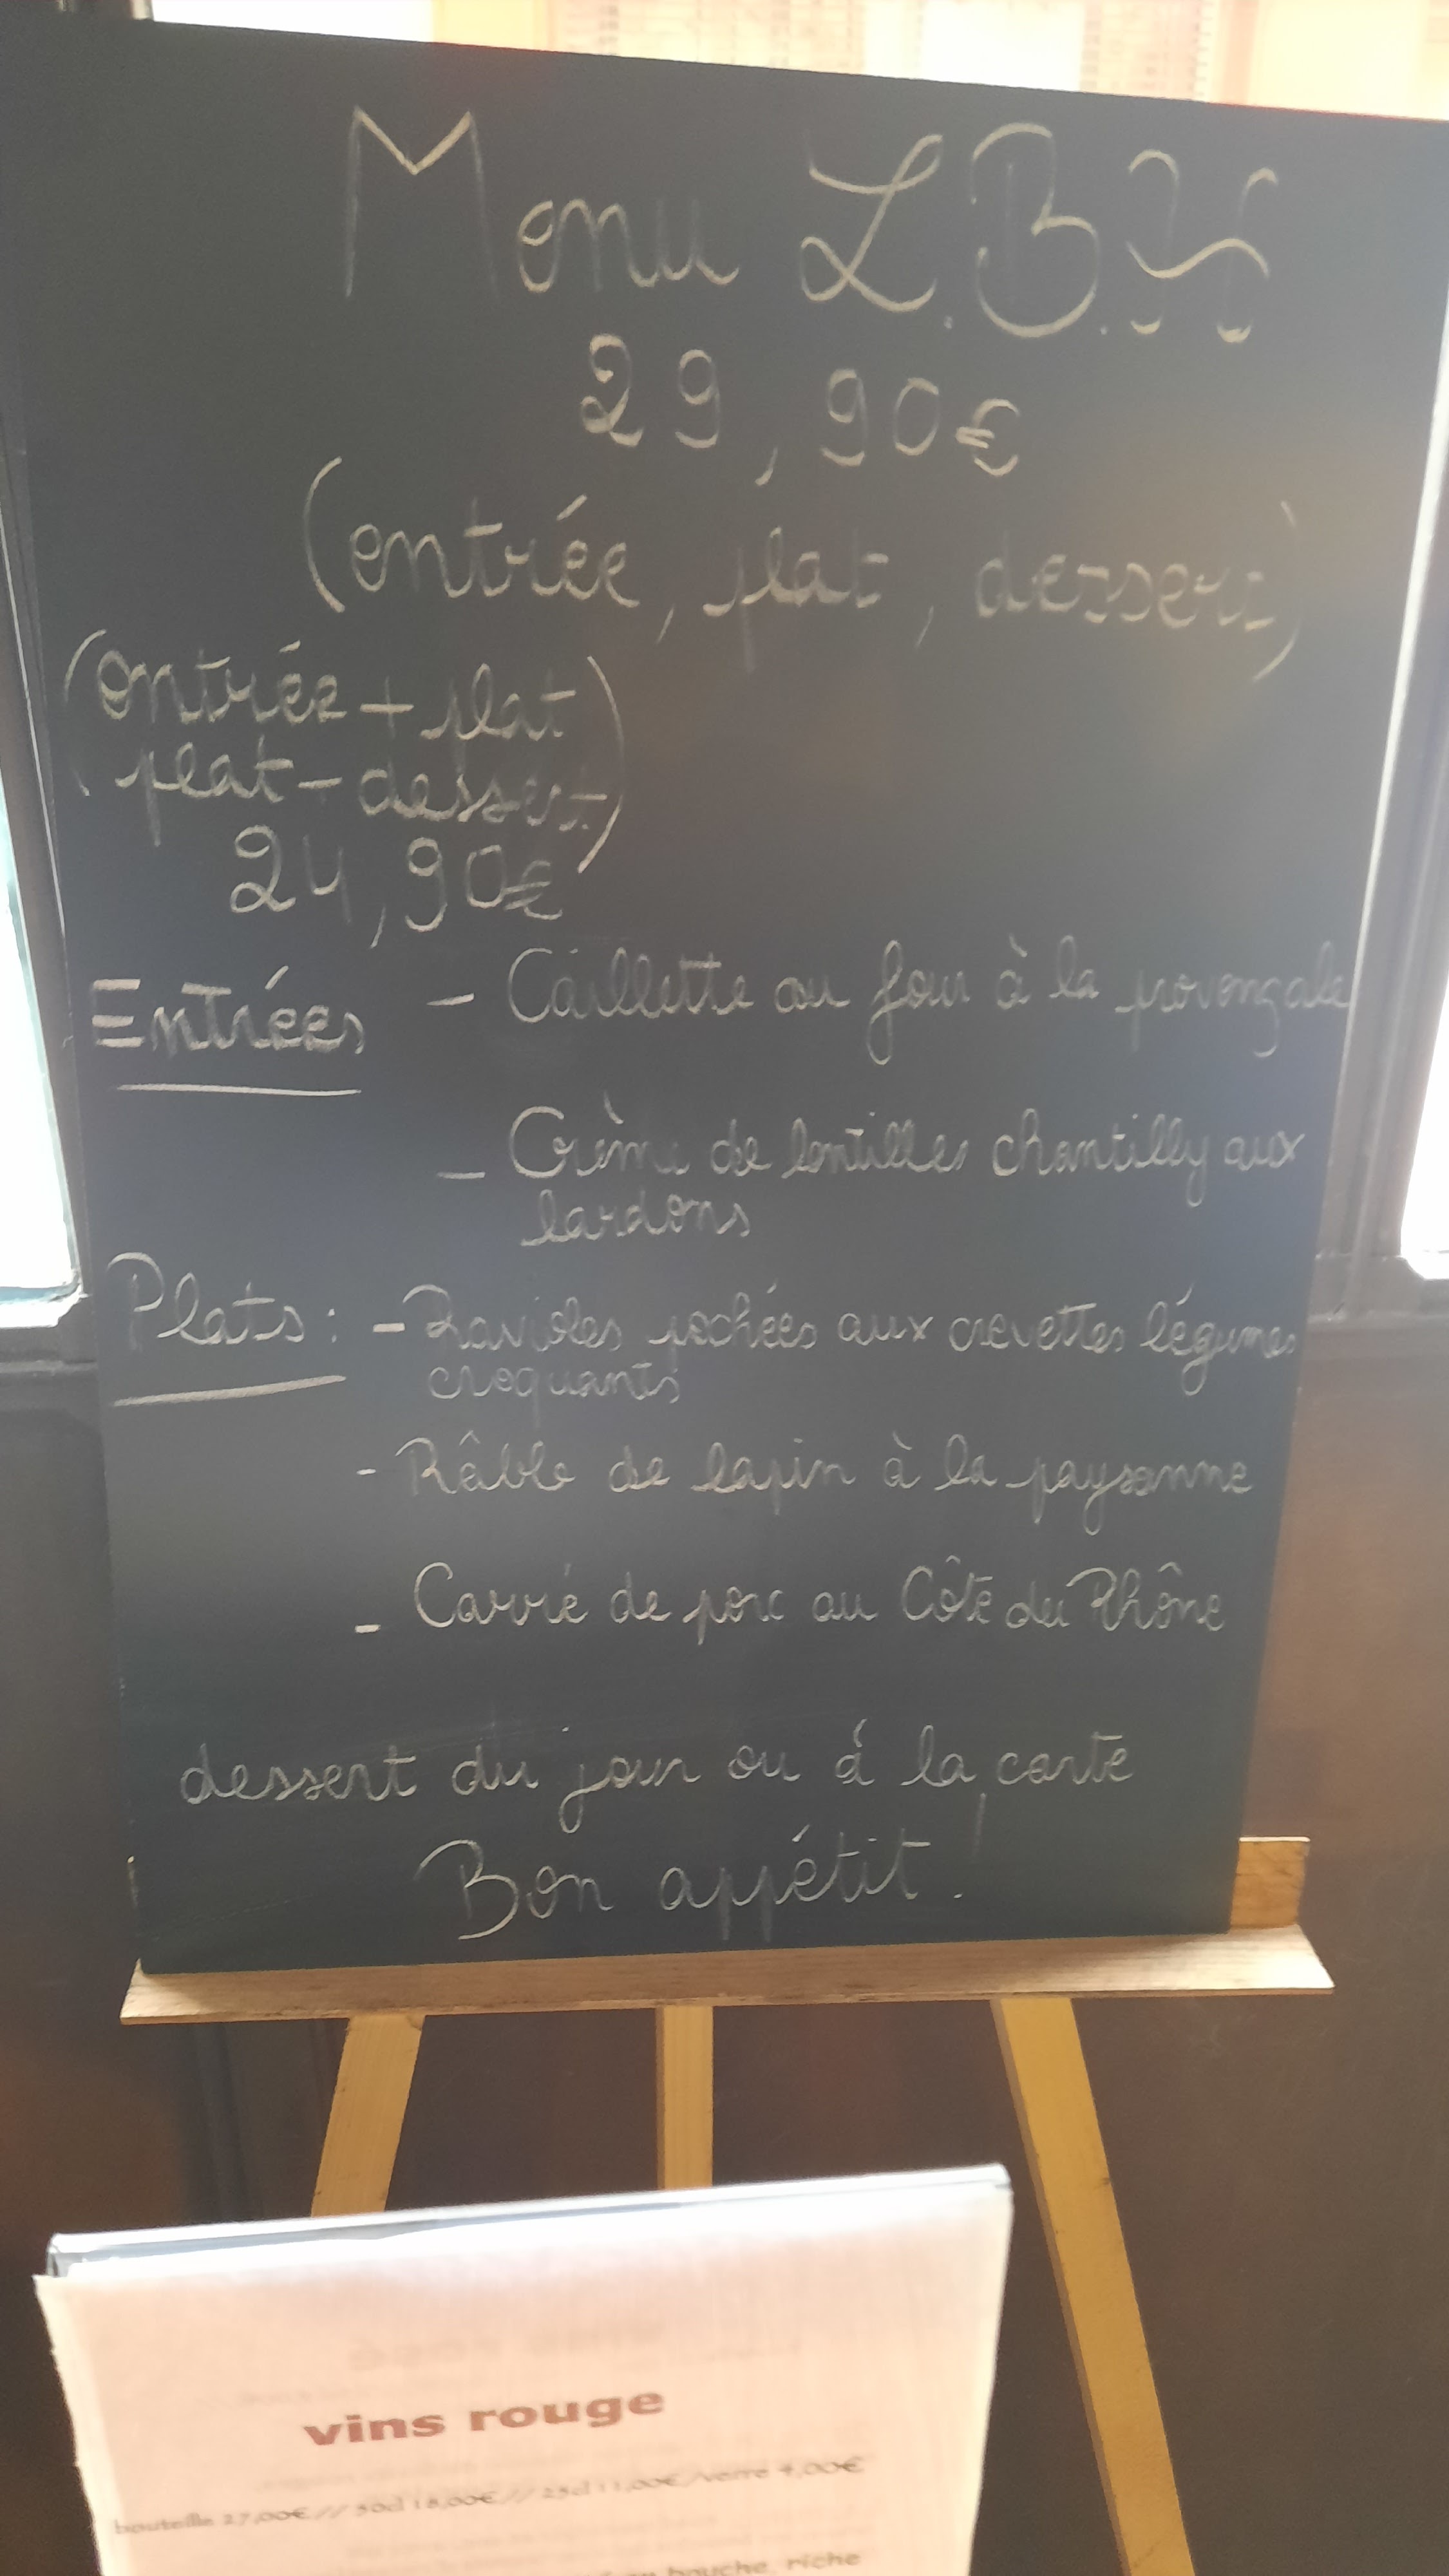 Menu L.B.H
29,90€
(entrée, plat, dessert)
(entrée + plat)
(plat - dessert)
24,90€
Entrées - Caillette au four à la provençale
- Crème de lentilles chantilly aux
lardons
Plats: - Ravioles pochées aux crevettes légumes
croquants
- Râble de lapin à la paysanne
- Carré de porc au Côte du Rhône
dessert du jour ou à la carte
Bon appétit!
vins rouge
bouteille 27,00€// 50cl 18,00€// 25cl 11,00€/verre 4,00€
en bouche, riche